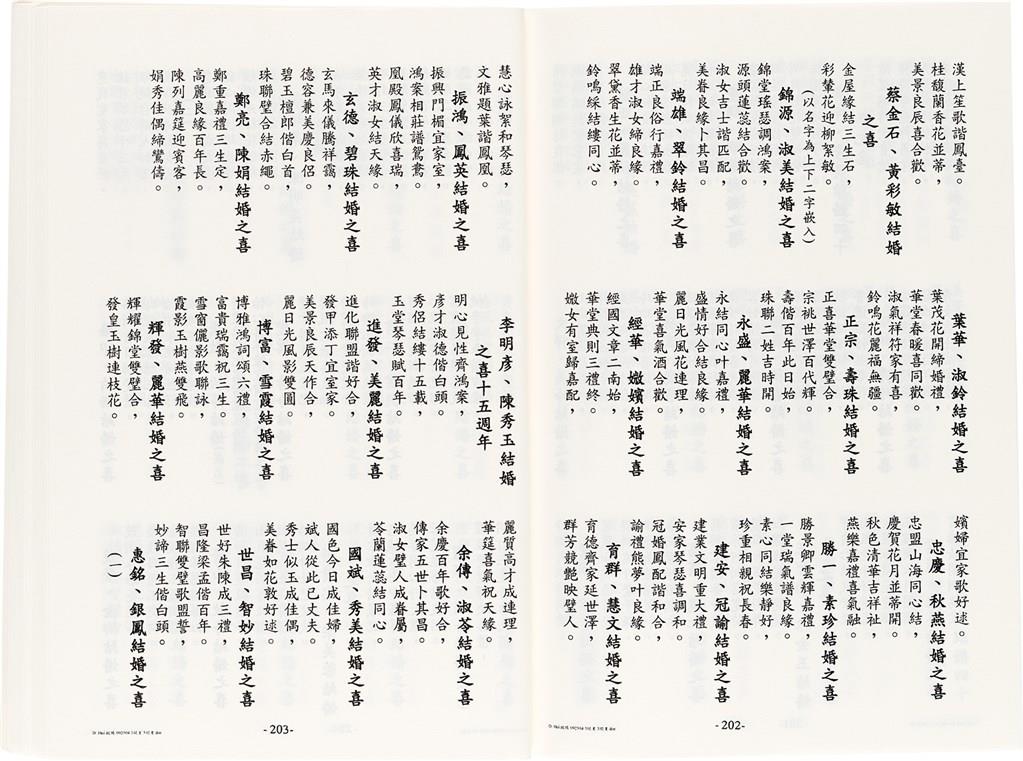 漢上笙歌諧鳳臺。
桂馥蘭香花並蒂，
美景良辰喜合歡。
蔡金石、黃彩敏結婚
之喜
金屋緣結三生石，
彩輦花迎柳絮敏。
（以名字為上下二字嵌入）
錦源、淑美結婚之喜
錦堂瑤瑟調鴻案，
源頭蓮蕊結合歡。
淑女吉士諧匹配，
美眷良緣卜其昌。
瑞雄、翠鈴結婚之喜
瑞正良俗行嘉禮，
雄才淑女締良緣。
翠黛香生花並蒂，
鈴鳴綵結縷同心。
葉華、淑鈴結婚之喜
葉茂花開締婚禮，
華堂春暖喜同歡。
淑氣祥符家有喜，
鈴鳴花麗福無疆。
正宗、壽珠結婚之喜
正喜華堂雙璧合，
宗祧世澤百代輝。
壽偕百年此日始，
珠聯二姓吉時開。
永盛、麗華結婚之喜
永結同心叶嘉禮，
盛情好合結良緣。
麗日光風花連理，
華堂喜氣酒合歡。
經華、嫩嬪結婚之喜
經國文章二南始，
華堂典則三禮終。
嫩女有室歸嘉配，
嬪婦宜家歌好逑。
忠慶、秋燕結婚之喜
忠盟山海同心結，
慶賀花月並蒂開。
秋色清華吉祥祉，
燕樂嘉禮喜氣融。
勝一、素珍結婚之喜
勝景卿雲輝嘉禮，
一堂瑞氣譜良緣。
素心同結樂靜好，
珍重相親祝長春。
建安、冠諭結婚之喜
建業文明重大禮，
安家琴瑟喜調和。
冠婚鳳配諧和合，
諭禮熊夢叶良緣。
育群、慧文結婚之喜
育德齊家延世澤，
群芳競艷映璧人。
-202-
慧心詠絮和琴瑟，
文雅題葉諧鳳凰。
振鴻、鳳英結婚之喜
振興門楣宜家室，
鴻案相莊譜鴛鴦。
凰殿鳳儀欣喜瑞，
英才淑女結天緣。
玄德、碧珠結婚之喜
玄馬來儀騰祥靄，
德容兼美慶良侶。
碧玉檀郎偕白首，
珠聯璧合結赤繩。
鄭亮、陳娟結婚之喜
鄭重嘉禮三生定，
高麗良緣百年長。
陳列嘉筵迎賓客，
娟秀佳偶締鸞儔。
李明彥、陳秀玉結婚
之喜十五週年
明心見性齊鴻案，
彥才淑德偕白頭。
秀侶結縷十五載，
玉堂琴瑟賦百年。
進發、美麗結婚之喜
進化聯盟諧好合，
發甲添丁宜室家。
美景良辰天作合，
麗日光風影雙圓。
博富、雪霞結婚之喜
博雅鴻詞頌六禮，
富貴瑞靄祝三生。
雪窗儷影歌聯詠，
霞影玉樹燕雙飛。
輝發、麗華結婚之喜
輝耀錦堂雙璧合，
發皇玉樹連枝花。
麗質高才成連理，
華筵喜氣祝天緣。
余傳、淑苓結婚之喜
余慶百年歌好合，
傳家五世卜其昌。
淑女璧人成眷屬，
苓蘭蓮蕊結同心。
國斌、秀美結婚之喜
國色今日成佳婦，
斌人從此已丈夫。
秀士似玉成佳偶，
美眷如花敦好逑。
世昌、智妙結婚之喜
世好朱陳成三禮，
昌隆梁孟偕百年。
智聯雙璧歌盟誓，
妙諦三生偕白頭。
惠銘、銀鳳結婚之喜
（一）
-203-